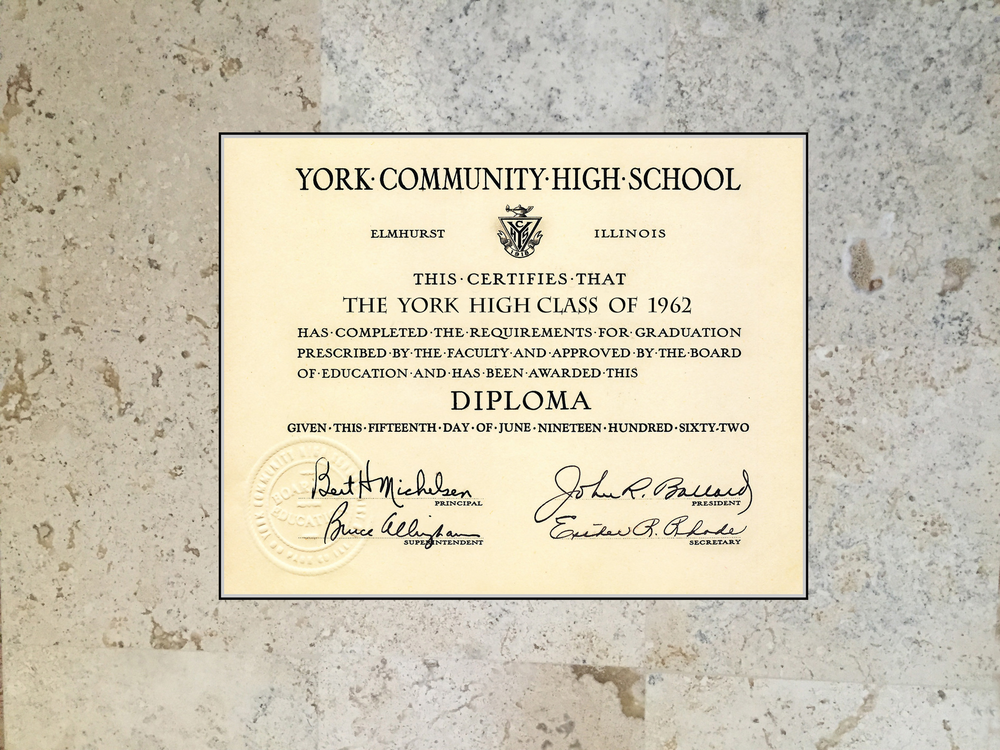 YORK·COMMUNITY·HIGH·SCHOOL
ELMHURST ILLINOIS
YCHS
1918
THIS·CERTIFIES·THAT
THE YORK HIGH CLASS OF 1962
HAS·COMPLETED·THE·REQUIREMENTS·FOR·GRADUATION
PRESCRIBED·BY·THE·FACULTY·AND·APPROVED·BY·THE·BOARD
OF·EDUCATION·AND·HAS·BEEN·AWARDED·THIS
DIPLOMA
GIVEN·THIS·FIFTEENTH·DAY·OF·JUNE·NINETEEN·HUNDRED·SIXTY-TWO
Bert H Michelsen John R. Ballard
PRINCIPAL PRESIDENT
Bruce Allingham Esther R. Rhode
SUPERINTENDENT SECRETARY
BOARD
EDUCATION